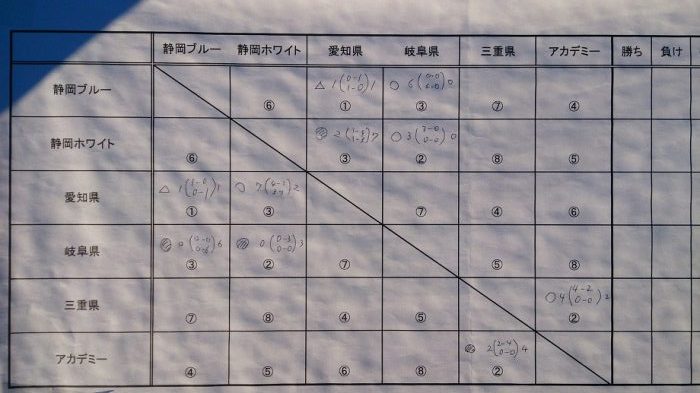 静岡ブルー 静岡ホワイト 愛知県 岐阜県 三重県 アカデミー 勝ち 負け
静岡ブルー △ 1(0-1 1-0)1 ○ 6 0
⑥ ① ③ ⑦ ④
静岡ホワイト 2 7 ○ 3(3-0 0-0)0
⑥ ③ ② ⑧ ⑤
愛知県 △ 1(1-0 0-1)1 ○ 7 2
① ③ ⑦ ④ ⑥
岐阜県 0 6 0(0-3 0-0)3
③ ② ⑦ ⑤ ⑧
三重県 ○ 4(4-2 0-0)2
⑦ ⑧ ④ ⑤ ②
アカデミー 2(2-4 0-0)4
④ ⑤ ⑥ ⑧ ②